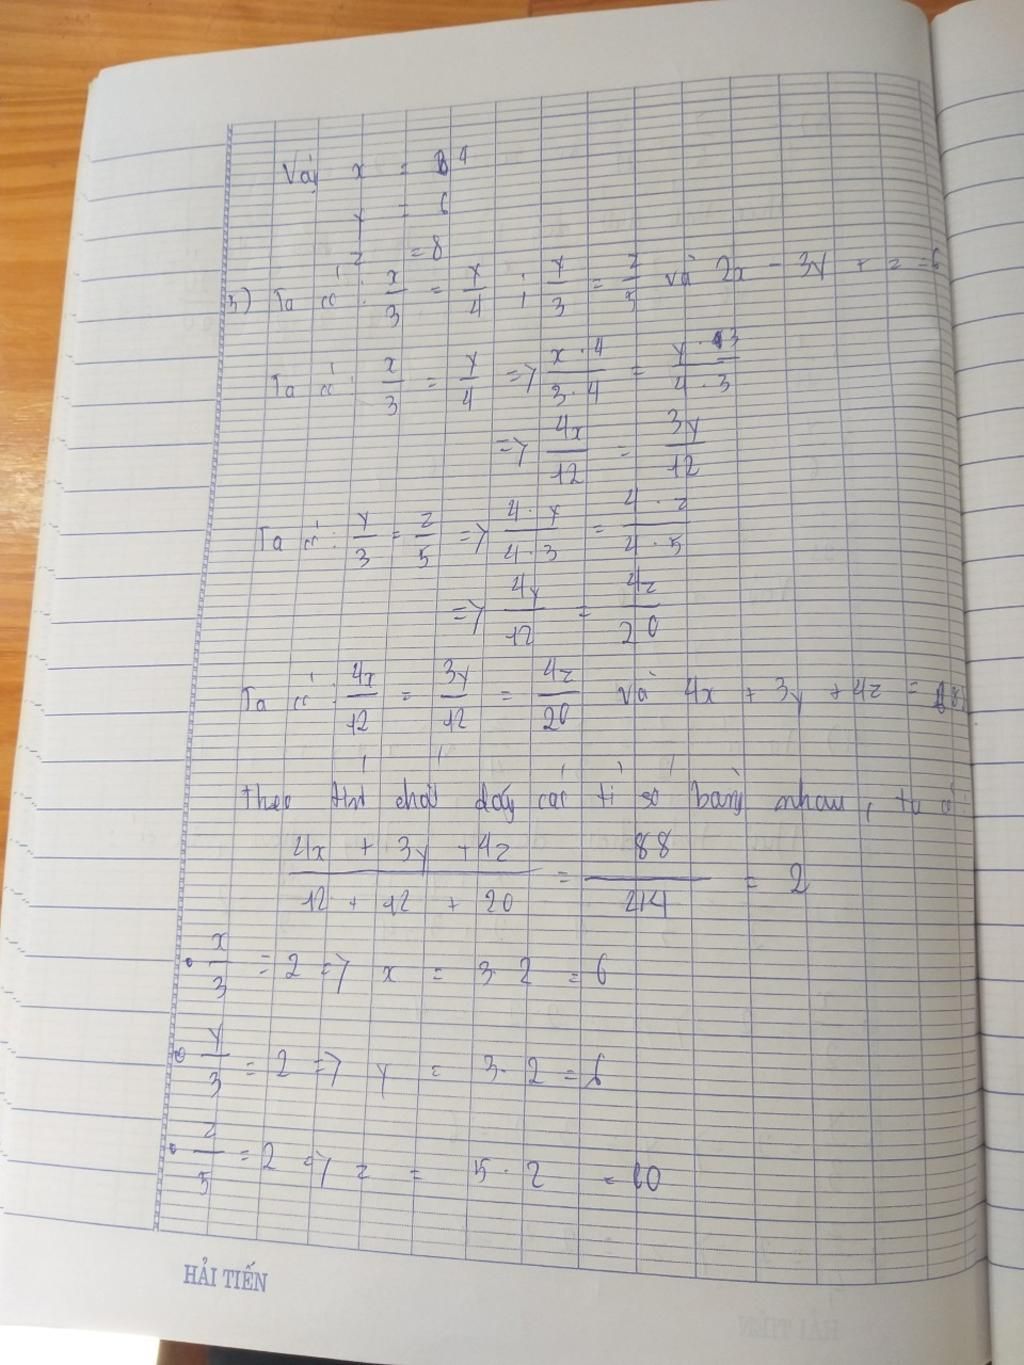 Vậy x = 4
y = 6
z = 8
3) Ta có: x/3 = y/4 ; y/3 = z/5 và 2x - 3y + z = 6
Ta có: x/3 = y/4 => x.4/3.4 = y.3/4.3
=> 4x/12 = 3y/12
Ta có: y/3 = z/5 => 4.y/4.3 = 4.z/4.5
=> 4y/12 = 4z/20
Ta có: 4x/12 = 3y/12 = 4z/20 và 4x + 3y + 4z =
theo tính chất dãy các tỉ số bằng nhau, ta có
4x + 3y + 4z/12 + 12 + 20 = 88/214 = 2
• x/3 = 2 => x = 3.2 = 6
• y/3 = 2 => y = 3.2 = 6
• z/5 = 2 => z = 5.2 = 10
HẢI TIẾN